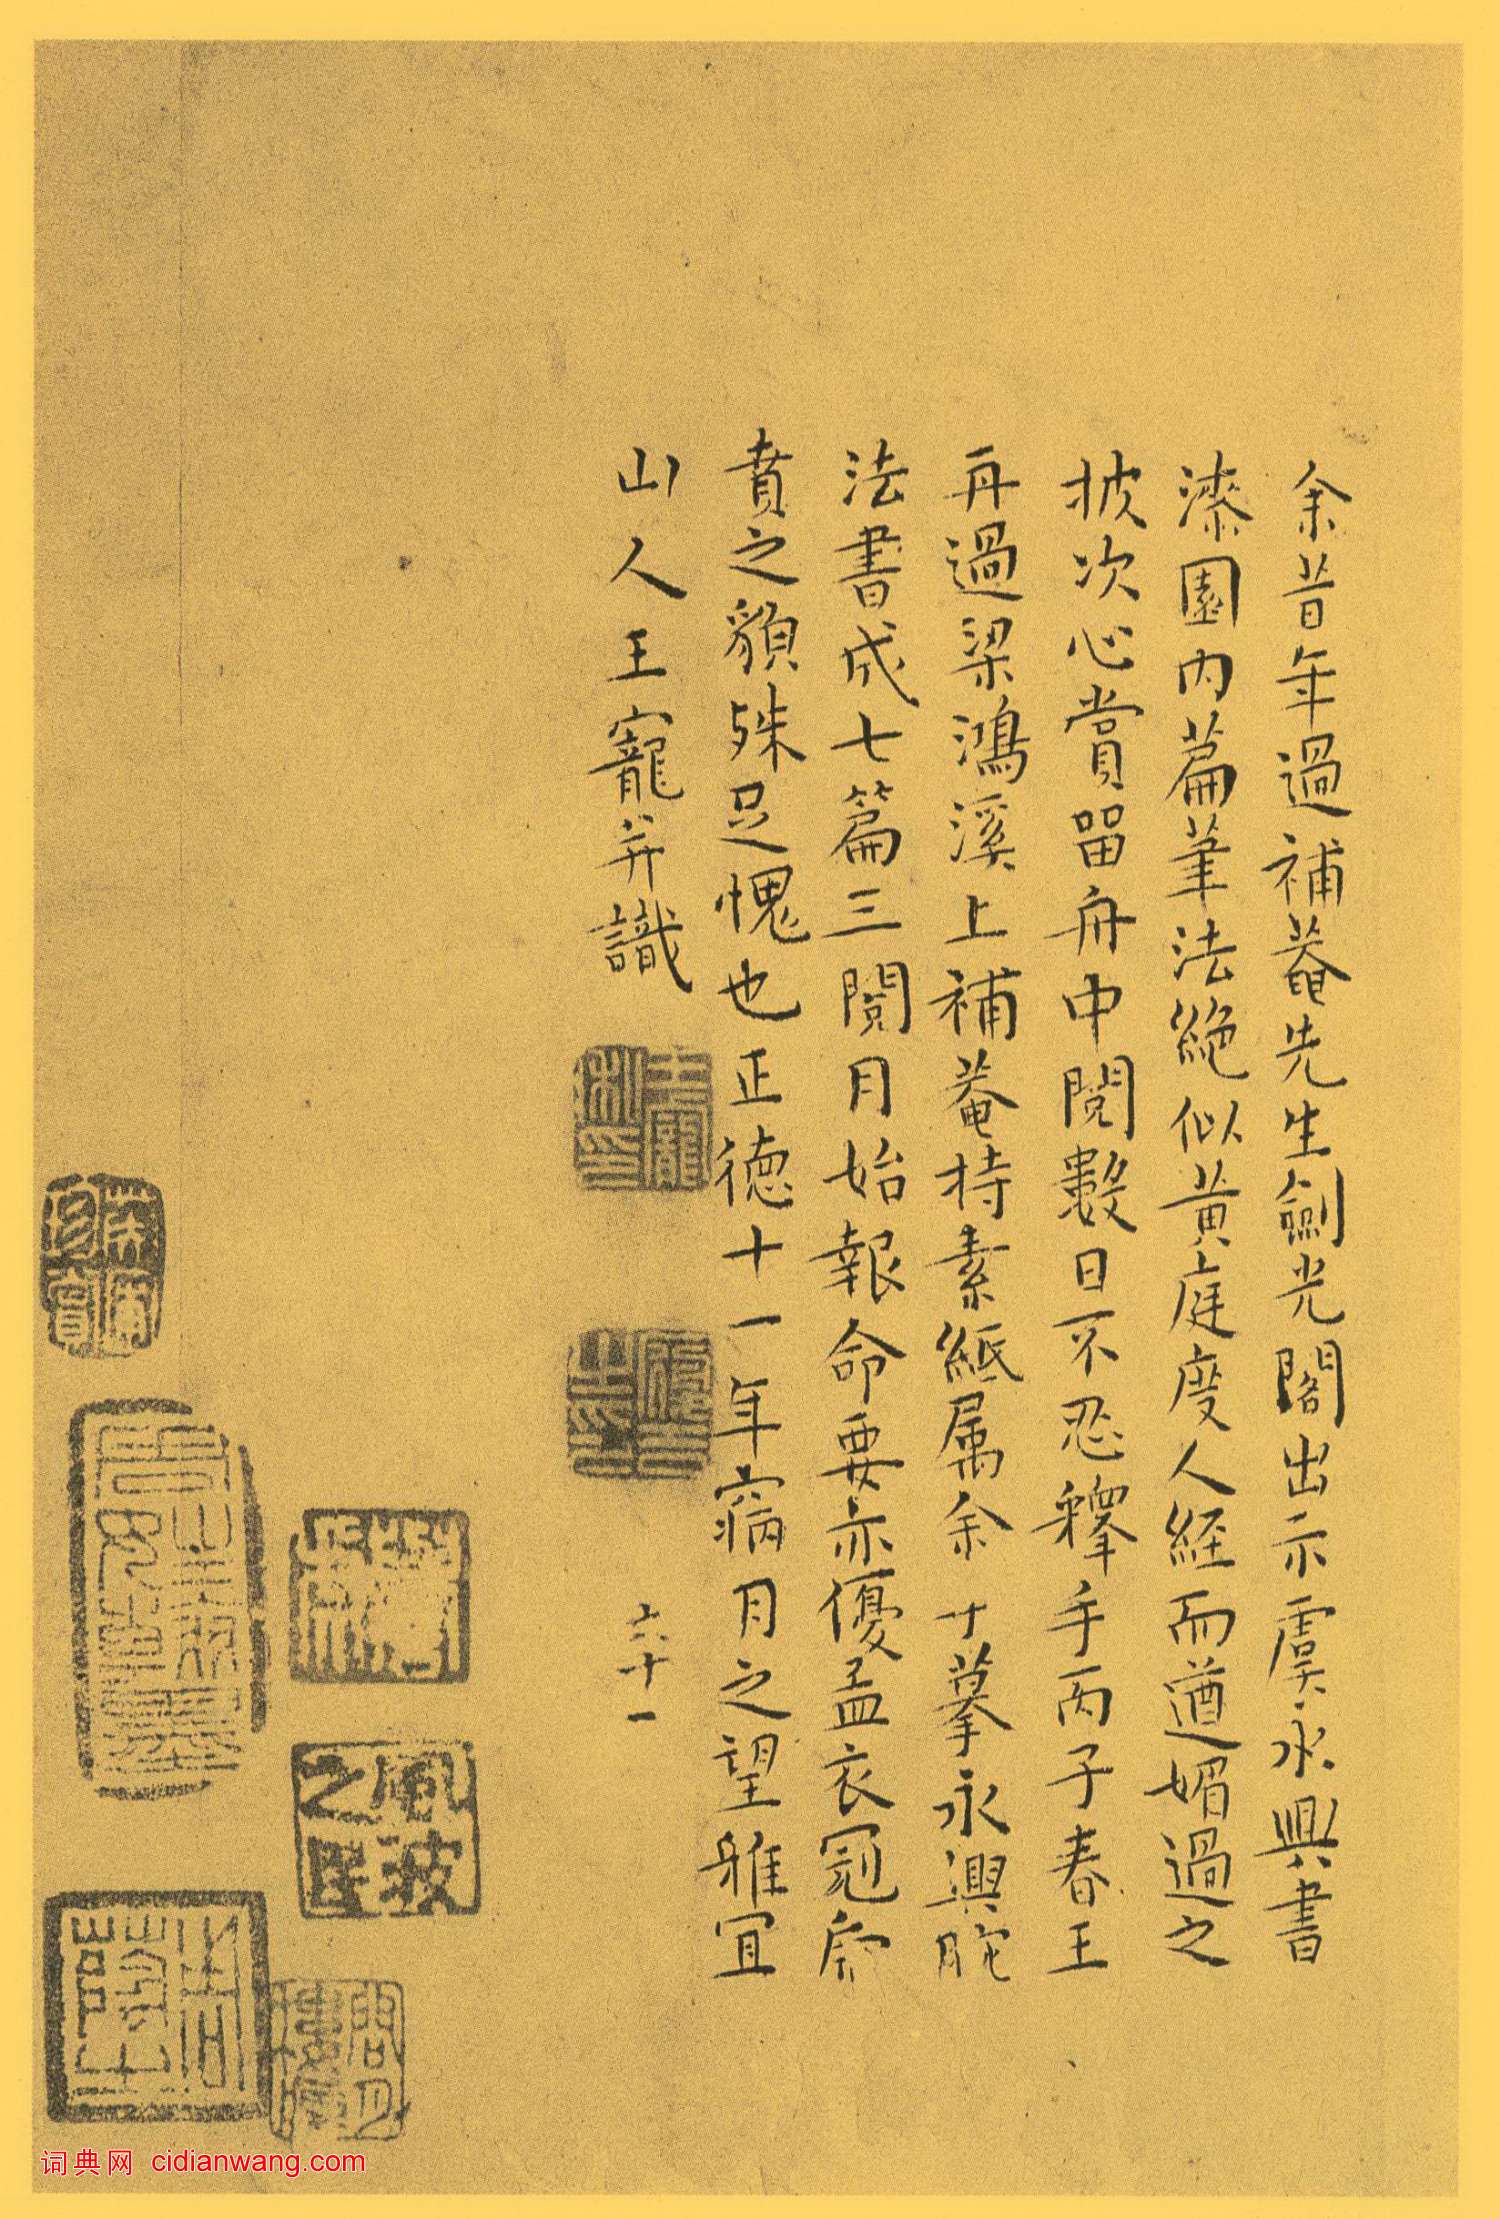 余昔年過補菴先生劍光閣出示虞永興書
漆園內篇筆法絕似黃庭度人經而遒媚過之
披次心賞留舟中閱數日不忍釋手丙子春王
再過梁鴻溪上補菴持素紙属余寸摹永興
法書成七篇三閱月始報命要亦優孟衣冠
賁之貌殊足愧也正德十一年窉月之望雅宜
山人王寵并識
六十一
王寵
風波之民
词典网 cidianwang.com